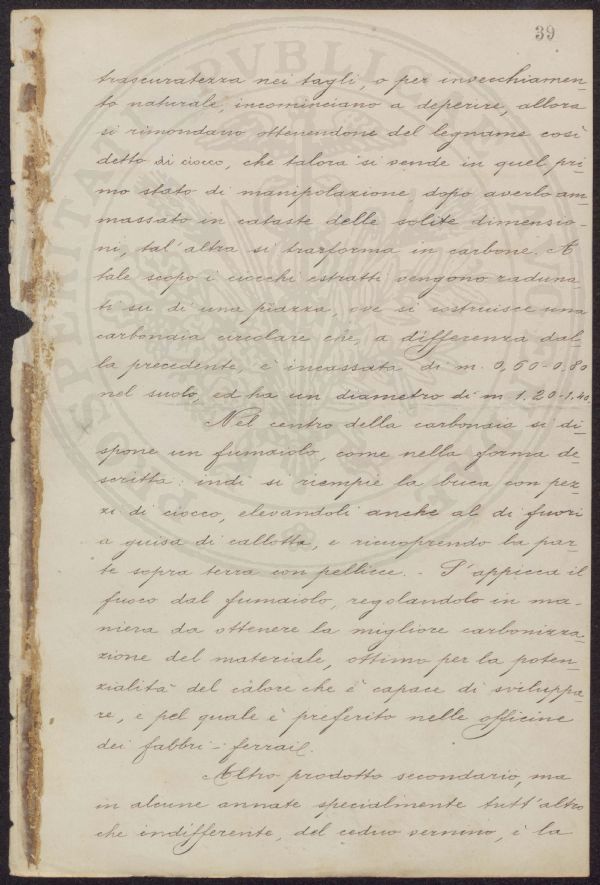 39
trascuratezza nei tagli, o per invecchiamen-
to naturale, incominciano a deperire, allora
si rimondano ottenendone del legname così
detto di ciocco, che talora si vende in quel pri-
mo stato di manipolazione dopo averlo am-
massato in cataste delle solite dimensio-
ni, tal'altra si trasforma in carbone. A
tale scopo i ciocchi estratti vengono raduna-
ti su di una piazza, ove si costruisce una
carbonaia circolare che, a differenza dal-
la precedente, è incassata di m. 0,60-0,80
nel suolo, ed ha un diametro di m 1.20-1.40.
Nel centro della carbonaia si di-
spone un fumaiolo, come nella forma de-
scritta: indi si riempie la buca con pez-
zi di ciocco, elevandoli anche al di fuori
a guisa di callotta, e ricuoprendo la par-
te sopra terra con pellicce. - S'appicca il
fuoco dal fumaiolo, regolandolo in ma-
niera da ottenere la migliore carbonizza-
zione del materiale, ottimo per la poten-
zialità del calore che è capace di sviluppa-
re, e pel quale è preferito nelle officine
dei fabbri-ferrai.
Altro prodotto secondario, ma
in alcune annate specialmente tutt'altro
che indifferente, del ceduo vernino, è la